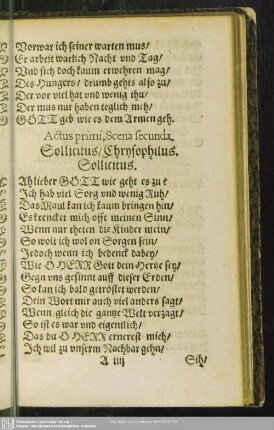 Vorwar ich seiner warten mus/
Er arbeit warlich Nacht vnd Tag/
Vnd sich doch kaum erwehren mag/
Des Hungers/ drumb gehts also zu/
Der vor viel hat vnd wenig thu/
Der mus nur haben teglich meh/
GOTT geb wie es dem Armen geh.
Actus primi, Scena secunda.
Sollicitus/ Chrysophilus.
Sollicitus.
Ah lieber GOTT wie geht es zu?
Ich hab viel Sorg vnd wenig Ruh/
Das Maul kan ich kaum bringen hin/
Es krencket mich offt meinen Sinn/
Wenn nur theten die Kinder mein/
So wolt ich wol on Sorgen sein/
Jedoch wenn ich bedenck daben/
Wie O HERR Gott dein Hertze sey/
Gegn vns gesinnt auff dieser Erden/
So kan ich bald getröstet werden/
Dein Wort mir auch viel anders sagt/
Wenn gleich die gantze Welt verzagt/
So ist es war vnd eigentlich/
Das du O HERR ernerest mich/
Ich wil zu vnserm Nachbar gehn/
A iiij Sih/